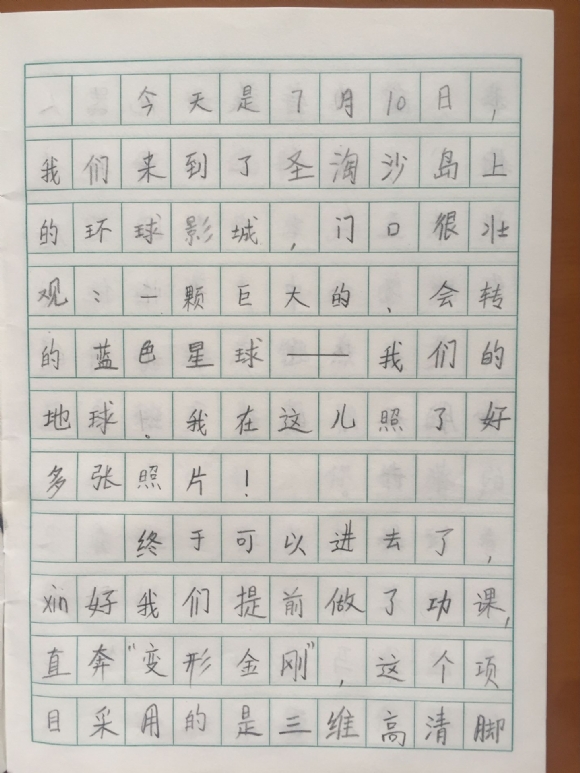 今天是7月10日，
我们来到了圣淘沙岛上
的环球影城，门口很壮
观：一颗巨大的、会转
的蓝色星球——我们的
地球．我在这儿照了好
多张照片！
终于可以进去了，
xin好我们提前做了功课，
直奔"变形金刚"，这个项
目采用的是三维高清脚